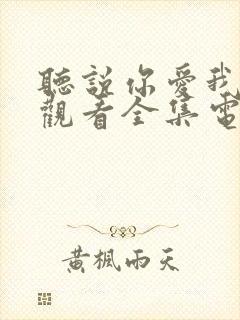 聽說你愛我
觀看全集電
黃楓雨天